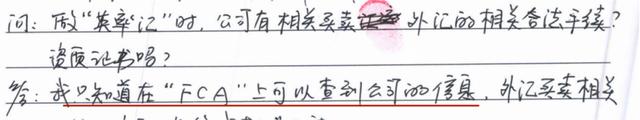 问：做“英镑记”时，公司有相关买卖外汇的相关合法手续？
资质证书吗？
答：我只知道在“FCA”上可以查到公司的信息，外汇买卖相关